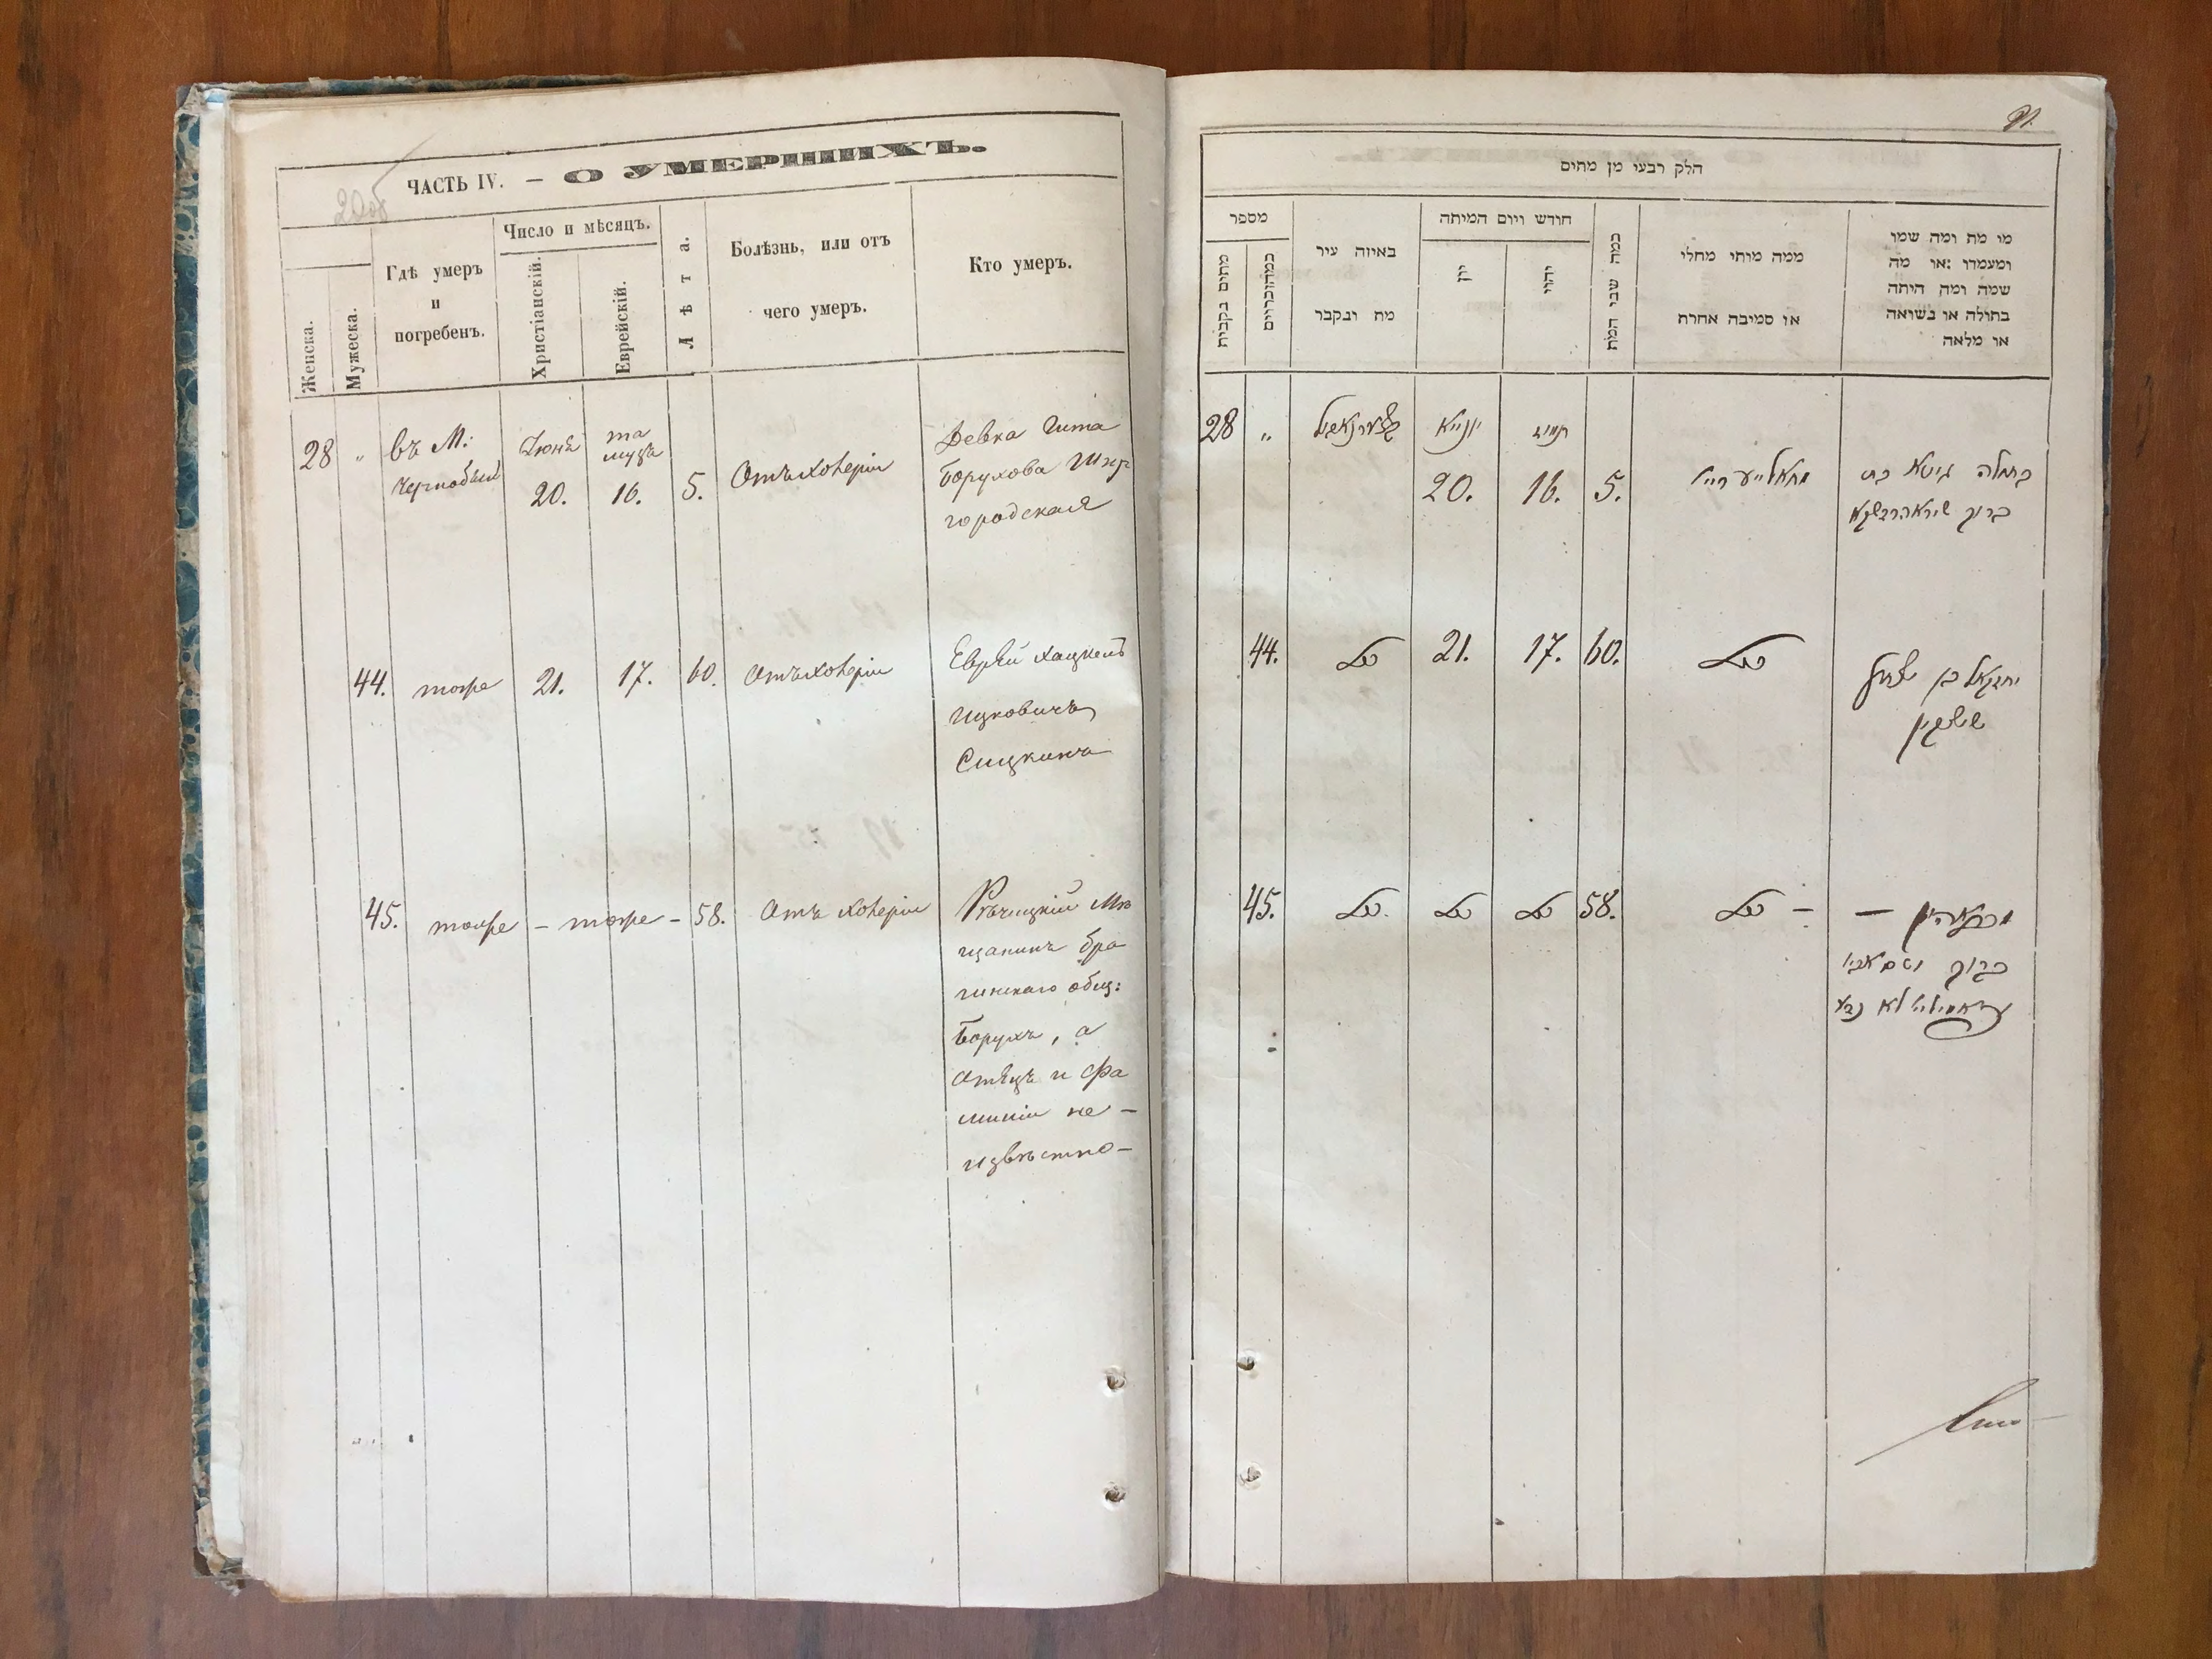 ЧАСТЬ IV. – О УМЕРШИХЪ.
Женска.
Мужеска.
Гдѣ умеръ
и
погребенъ.
Число и мѣсяцъ.
Христіанскій.
Еврейскій.
Лѣта.
Болѣзнь, или отъ
чего умеръ.
Кто умеръ.
28 „ въ М: Чернобыль Іюнь 20. тамузъ 16. 5. Отъ холеріи
Девка Гита
Борухова
городская
44. тоже 21. 17. 60. Отъ холеріи
Еврей Хацкель
Ицковичъ
Сицкинъ
45. тоже – тоже – 58. Отъ холеріи
Рѣчицкій Мѣ
щанинъ Бра
гинскаго общ:
Борухъ, а
Отецъ и фа
миліи не –
извѣстно –
הלק רבעי מן מתים
מספר
מתים בנקבות
במהזוכריים
באיזה עיר
מת ונקבר
חודש ויום המיתה
יוון
יהודי
כמה שני המת
ממה מותו מחלי
או סמיבה אחרת
מו מת ומה שמו
ומעמדו :או מה
שמה ומה היתה
בתולה או נשואה
או מלאה
28 „ יונייא 20. תמוז 16. 5.
בתולה גיטא בת
ברוך
44. 21. 17. 60.
יחזקאל בן יצחק
שיצקין
45. 58.
ברוך ושם אביו
לא נודע